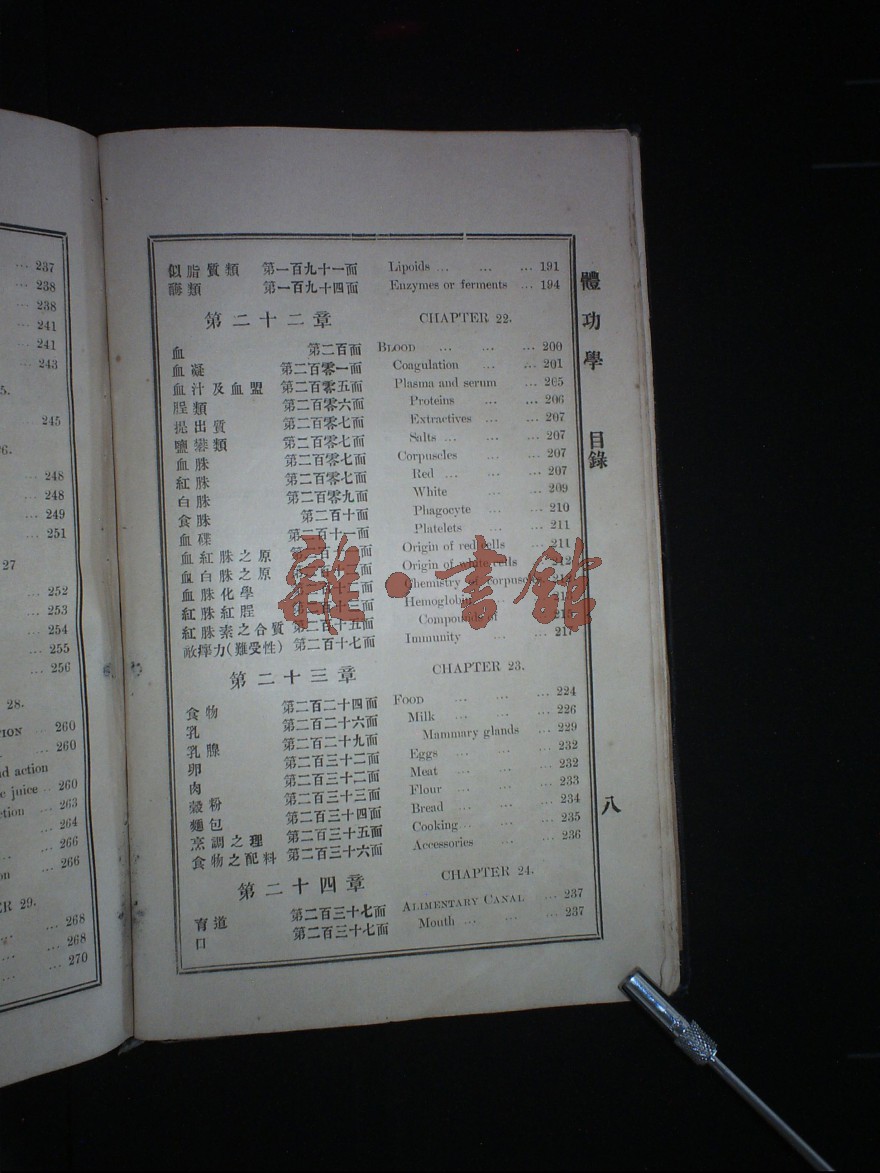 ... 237
... 238
... 238
... 241
... 241
... 243
5.
245
6.
... 248
... 248
... 249
... 251
27
... 252
... 253
... 254
... 255
... 256
28.
260
... 260
nd action
e juice .. 260
ction ... 263
... 264
... 266
on ... 266
ER 29.
... 268
... 268
... 270
似脂質類 第一百九十一面 Lipoids ... ... ... 191
酶類 第一百九十四面 Enzymes or ferments ... 194
第二十二章 CHAPTER 22.
血 第二百面 BLOOD ... ... ... 200
血凝 第二百零一面 Coagulation ... ... 201
血汁及血盟 第二百零五面 Plasma and serum ... 205
脭類 第二百零六面 Proteins ... ... 206
提出質 第二百零七面 Extractives ... ... 207
鹽類 第二百零七面 Salts ... ... ... 207
血脉 第二百零七面 Corpuscles ... ... 207
紅 第二百零七面 Red ... ... ... 207
白 第二百零九面 White ... ... 209
食 第二百十面 Phagocyte ... ... 210
血碟 第二百十一面 Platelets ... ... 211
血紅之原 Origin of red cells ... 211
血白之原 Origin of white cells 212
血化學 Chemistry of corpuscles 212
紅紅脭 Hemoglobin
紅素之合質 第二百十五面 Compounds of 215
敵痒力(難受性) 第二百十七面 Immunity ... ... 217
第二十三章 CHAPTER 23.
食物 第二百二十四面 FOOD ... ... ... 224
乳 第二百二十六面 Milk ... ... ... 226
乳腺 第二百二十九面 Mammary glands ... 229
卵 第二百三十二面 Eggs ... ... ... 232
肉 第二百三十二面 Meat ... ... ... 232
穀粉 第二百三十三面 Flour ... ... ... 233
麵包 第二百三十四面 Bread ... ... ... 234
烹調之理 第二百三十五面 Cooking ... ... ... 235
食物之配料 第二百三十六面 Accessories ... ... 236
第二十四章 CHAPTER 24.
育道 第二百三十七面 ALIMENTARY CANAL ... 237
口 第二百三十七面 Mouth ... ... ... 237
體功學 目錄
八
雜·書館